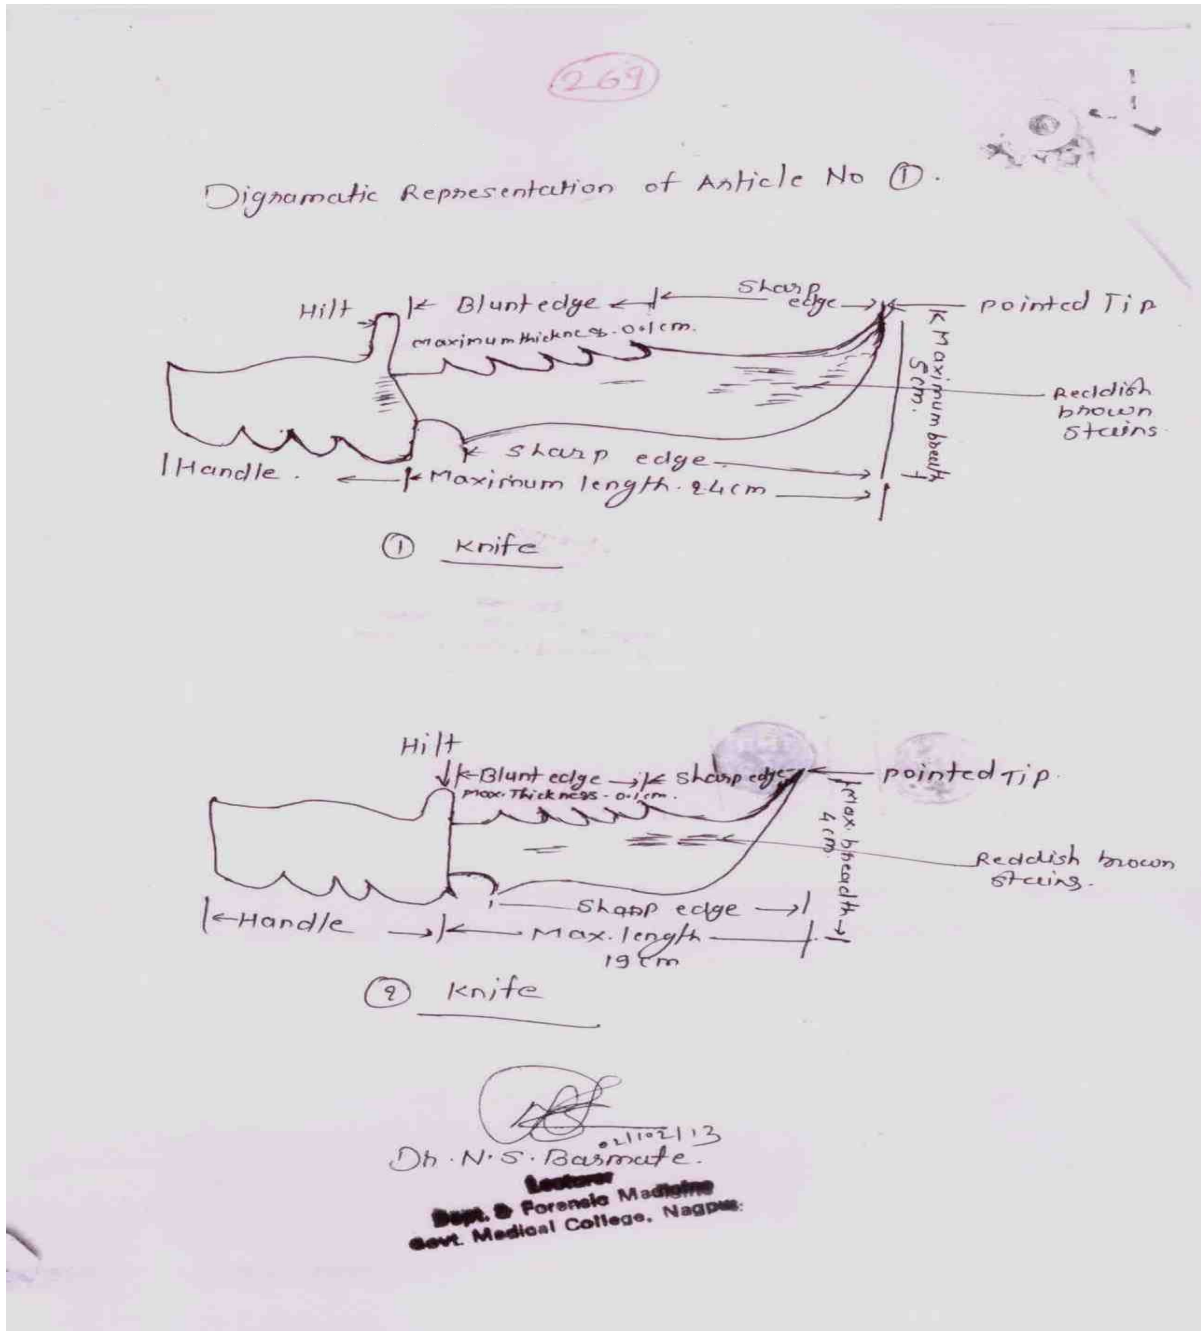 269
Digramatic Representation of Article No ①.
Hilt
Blunt edge
Sharp edge
pointed Tip
Maximum thickness - 0.1cm.
Maximum breath 5cm.
Reddish brown stains.
Sharp edge
Handle.
Maximum length. 24cm
① Knife
Hilt
Blunt edge
Sharp edge
pointed Tip.
Max. Thickness - 0.1cm.
Max. breadth 4cm
Reddish brown stains.
Sharp edge
Handle
Max. length 19 cm
② Knife
Dr. N. S. Basmate.
Lecturer
Dept. Forensic Madicine
Govt. Medical College, Nagpur.